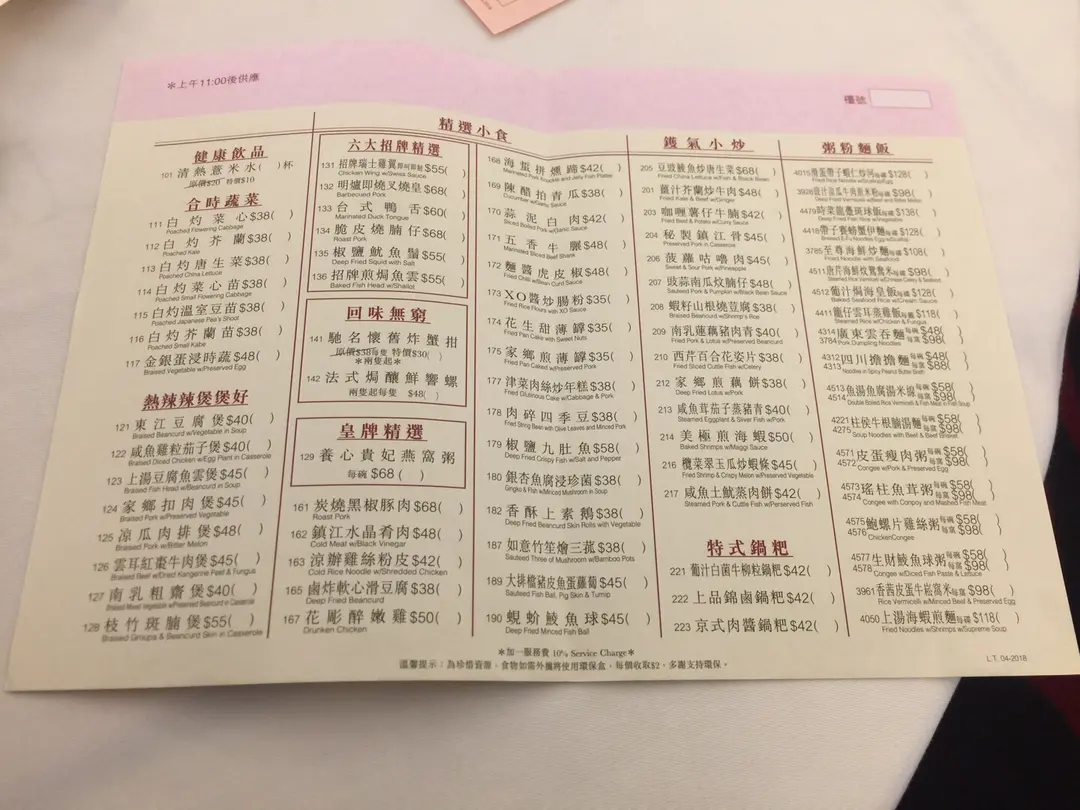 *上午11:00後供應
檯號
健康飲品
101 清熱薏米水( )杯
原價$20 特價$10
合時蔬菜
111 白灼菜心$38( )
Poached Flowering Cabbage
112 白灼芥蘭$38( )
Poached Kale
113 白灼唐生菜$38( )
Poeched China Lettuce
114 白灼菜心苗$38( )
Poached Small Flowering Cabbage
115 白灼溫室豆苗$38( )
Poached Japanese Pea's Shoot
116 白灼芥蘭苗$38( )
Poached Small Kabe
117 金銀蛋浸時蔬$48( )
Braised Vegetable w/Preserved Egg
熱辣辣煲煲好
121 東江豆腐煲$40( )
Braised Beancurd w/Vegetable in Soup
122 咸魚雞粒茄子煲$40( )
Braised Diced Chicken w/Egg Plant in Casserole
123 上湯豆腐魚雲煲$45( )
Braised Fish Head w/Beancurd in Soup
124 家鄉扣肉煲$45( )
Braised Pork w/Preserved Vegetable
125 涼瓜肉排煲$48( )
Braised Pork w/Bitter Melon
126 雲耳紅棗牛肉煲$45( )
Braised Beef w/Dried Kangerine Peel & Fungus
127 南乳粗齋煲$40( )
Braised Mixed Vegetable w/Preserved Beancurd in Casserole
128 枝竹斑腩煲$55( )
Braised Groups & Beancurd Skin in Casserole
精選小食
六大招牌精選
131 招牌瑞士雞翼即叫即製$55( )
Chicken Wing w/Swiss Sauce
132 明爐即燒叉燒皇$68( )
Barbecued Pork
133 台式鴨舌$60( )
Marinated Duck Tongue
134 脆皮燒腩仔$68( )
Roast Pork
135 椒鹽魷魚鬚$55( )
Deep Fried Squid with Salt
136 招牌煎焗魚雲$55( )
Baked Fish Head w/Shallot
回味無窮
141 馳名懷舊炸蟹拑
原價$38每隻 特價$30( )
*兩隻起*
142 法式焗釀鮮響螺
兩隻起每隻 $48( )
皇牌精選
129 養心貴妃燕窩粥
每碗 $68 ( )
161 炭燒黑椒豚肉$68( )
Roast Pork
162 鎮江水晶肴肉$48( )
Cold Meat w/Black Vinegar
163 涼辦雞絲粉皮$42( )
Cold Rice Noodle w/Shredded Chicken
165 鹵炸軟心滑豆腐$38( )
Deep Fried Beancurd
167 花彫醉嫩雞$50( )
Drunken Chicken
168 海蜇拼燻蹄$42( )
Marinated Pork Knuckle and Jelly Fish Platter
169 陳醋拍青瓜$38( )
Cucumber w/Garlic Sauce
170 蒜泥白肉$42( )
Sliced Boiled Pork w/Garlic Sauce
171 五香牛𦟌$48( )
Marinated Sliced Beef Shank
172 麵醬虎皮椒$48( )
Fried Chilli w/Bean Curd Sauce
173 XO醬炒腸粉$35( )
Fried Rice Flours with XO Sauce
174 花生甜薄罉$35( )
Fried Pan Cake with Sweet Nuts
175 家鄉煎薄罉$35( )
Fried Pan Cake w/Preserved
177 津菜肉絲炒年糕$38( )
Fried Glutinous Cake w/Cabbage & Pork
178 肉碎四季豆$38( )
Fried String Bean with Olive Leaves and Minced Pork
179 椒鹽九肚魚$58( )
Deep Fried Crispy Fish w/Salt and Pepper
180 銀杏魚腐浸珍菌$38( )
Gingko & Fish w/Minced Mushroom in Soup
182 香酥上素鵝$38( )
Deep Fried Beancurd Skin Rolls with Vegetable
187 如意竹笙燴三菰$38( )
Braised Three Mushroom w/Bamboo Pots
189 大排檔豬皮魚蛋蘿蔔$45( )
Sauteed Fish Ball, Pig Skin & Turnip
190 蜆蚧鯪魚球$45( )
Deep Fried Minced Fish Ball
鑊氣小炒
205 豆豉鯪魚炒唐生菜$68( )
Fried China Lettuce w/Fish & Black Bean
201 薑汁芥蘭炒牛肉$48( )
Fried Kale & Beef w/Ginger
203 咖喱薯仔牛腩$42( )
Fried Beef & Potato w/Curry Sauce
204 秘製鎮江骨$45( )
Preserved Pork in Casserole
206 菠蘿咕嚕肉$45( )
Sweet & Sour Pork w/Pineapple
207 豉蒜南瓜炆腩仔$48( )
Sauteed Pork & Pumpkin w/Black Bean Sauce
208 蝦籽山根燒豆腐$38( )
Braised Beancurd w/Shrimp's Roe
209 南乳蓮藕豬肉青$40( )
Fried Pork & Lotus w/Preserved Beancurd
210 西芹百合花姿片$38( )
Fried Sliced Cuttle Fish w/Celery
212 家鄉煎藕餅$38( )
Deep Fried Lotus w/Pork
213 咸魚茸茄子蒸豬青$40( )
Steamed Eggplant & Sliver Fish w/Pork
214 美極煎海蝦$50( )
Baked Shrimps w/Maggi Sauce
216 欖菜翠玉瓜炒蝦條$45( )
Fried Shrimp & Crispy Melon w/Preserved Vegetable
217 咸魚土魷蒸肉餅$42( )
Steamed Pork & Cuttle Fish w/Perserved Fish
特式鍋粑
221 葡汁白菌牛柳粒鍋粑$42( )
222 上品錦鹵鍋粑$42( )
223 京式肉醬鍋粑$42( )
粥粉麵飯
4015 滑蛋帶子蝦仁炒河每碟$128( )
3928 豉汁涼瓜牛肉煎米粉每碟$98( )
4479 時菜龍躉斑球飯每碟$138( )
Deep Fried Fish Rice w/Vegetable
4418 帶子賽螃蟹伊麵每碟$128( )
3785 至尊海鮮炒麵每碟$108( )
Fried Noodle with Seafood
4511 唐芹海鮮炆鴛鴦米每碟$98( )
4512 葡汁焗海皇飯每碟$128( )
Baked Seafood Rice w/Cream Sauce
4411 龍仔雲耳煎雞飯每碟$118( )
Steamed Rice w/Chicken & Fungus
4314 廣東雲吞麵每碗$48( )
3784 每窩$98( )
Pork Dumpling Noodles
4312 四川擔擔麵每碗$48( )
4313 每窩$88( )
Noodles in Spicy Peanut Broth
4513 魚湯魚腐湯米線每碗$58( )
4514 每窩$98( )
Double Boiled Rice Vermicelli & Fish Meat in Fish Soup
4221 柱侯牛根腩湯麵每碗$58( )
4275 每窩$98( )
Soup Noodles with Beef & Beef Brisket
4571 皮蛋瘦肉粥每碗$58( )
4572 每窩$98( )
Congee w/Pork & Preserved Egg
4573 瑤柱魚茸粥每碗$58( )
4574 每窩$98( )
Congee with Conpoy and Mashed Fish Meat
4575 鮑螺片雞絲粥每碗$58( )
4576 每窩$98( )
ChickenCongee
4577 生財鯪魚球粥每碗$58( )
4578 每窩$98( )
Congee w/Diced Fish Paste & Lettuce
3961 香茜皮蛋牛崧窩米每窩$98( )
Rice Vermicelli w/Minced Beef & Preserved Egg
4050 上湯海蝦煎麵每碟$118( )
Fried Noodles w/Shrimps w/Supreme Soup
*加一服務費 10% Service Charge*
溫馨提示:為珍惜資源,食物如需外攜將使用環保盒,每個收取$2,多謝支持環保。
L.T. 04-2018